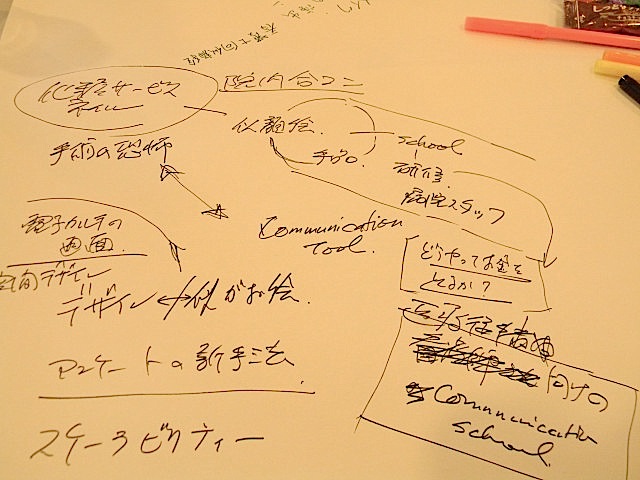 化粧サービス
ネイル
院内合コン
似顔絵
手術の恐怖
school
研修
病院スタッフ
Communication
Tool.
電子カルテの
画面.
空間デザイン
デザイン
似がお絵.
どうやってお金を
とるか?
アンケートの新手法
向けの
Communication
School.
スケーラビリティー